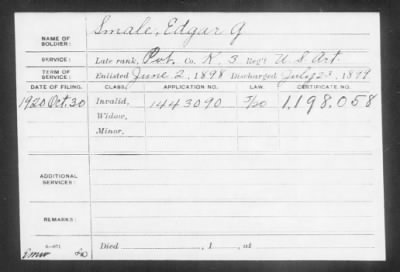 NAME OF SOLDIER: Smale, Edgar G
SERVICE: Late rank, Pvt. Co. K. 3 Reg't U. S. Art.
TERM OF SERVICE: Enlisted June 2, 1898 Discharged July 23, 1899
DATE OF FILING. CLASS. APPLICATION NO. LAW. CERTIFICATE NO.
1920 Oct. 30 Invalid, 1443090 1,198,058
Widow,
Minor,
ADDITIONAL SERVICES:
REMARKS:
Died , 1 , at